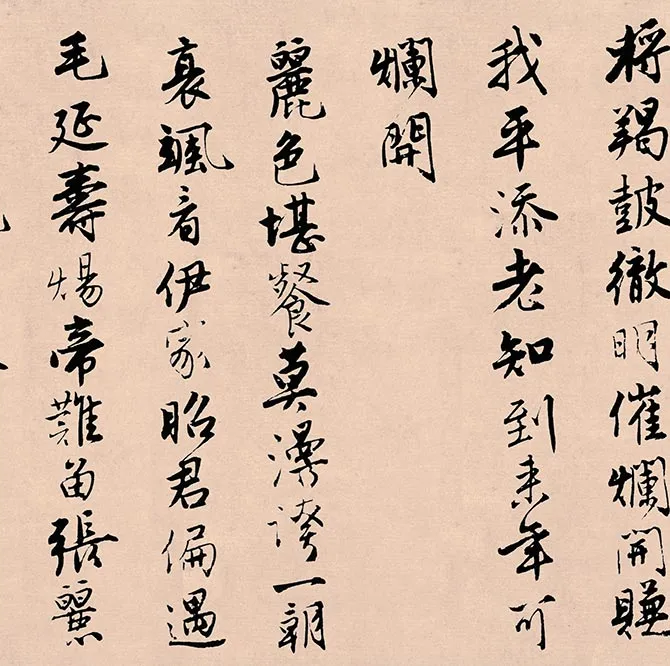 将羯鼓徹明催爛開賺
我平添老知到来年可
爛開
麗色堪餐莫漫誇一朝
衰颯看伊家昭君偏遇
毛延壽煬帝難留張麗